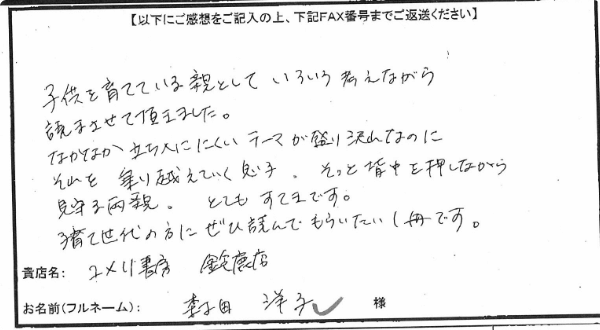 【以下にご感想をご記入の上、下記FAX番号までご返送ください】
子供を育てている親として いろいろ 考えながら
読まさせて頂きました。
なかなか 立ち入りにくい テーマが 盛り沢山なのに
それを 乗り越えていく 息子、そっと 背中を押しながら
見守る両親。とても すてきです。
子育て世代の方に ぜひ読んで もらいたい1冊です。
貴店名: ユメリ書房 鈴鹿店
お名前(フルネーム): 田 洋子 様